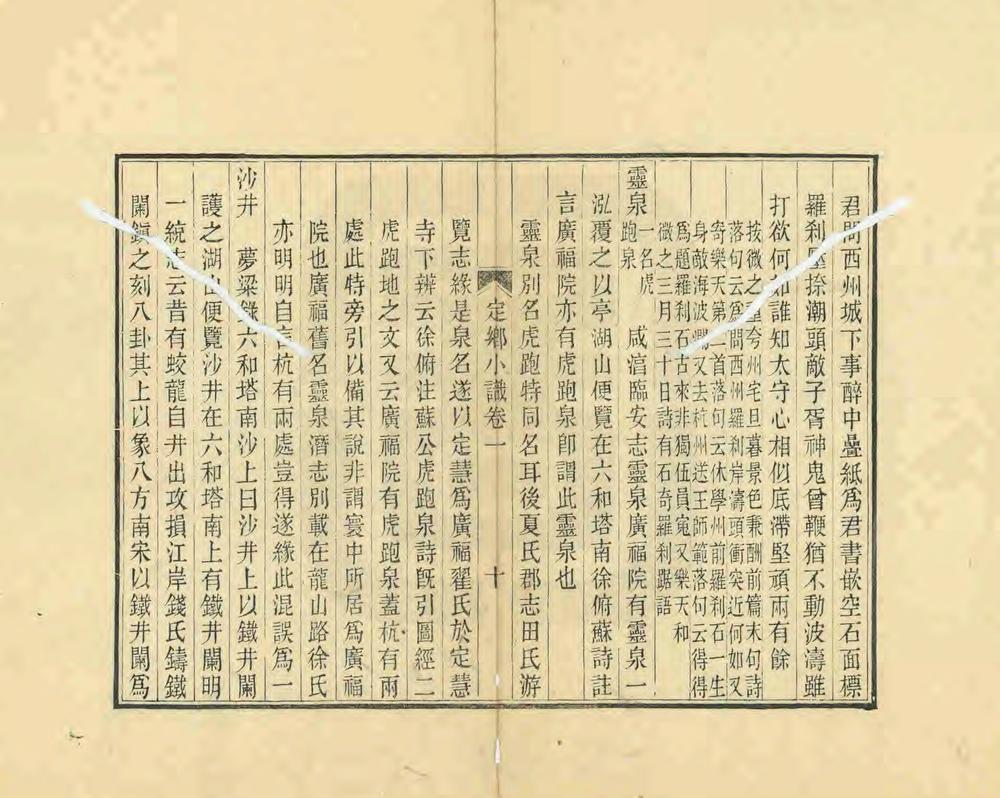 君問西州城下事醉中疊紙爲君書嵌空石面標
羅刹 捺潮頭敵子胥神鬼曾鞭猶不動波濤雖
打欲何如誰知太守心相似底滯堅頑兩有餘
按微之重夸州宅旦暮景色兼酬前篇末句詩
落句云爲問西州羅刹岸濤頭衝突近何如又
寄樂天第二首落句云休學州前羅刹石一生
身敵海波瀾又去杭州送王師範落句云得得
爲題羅刹石古來非獨伍員寃又樂天和
微之三月三十日詩有石奇羅刹踞語
靈泉一名虎跑泉 咸淳臨安志靈泉廣福院有靈泉一
泓覆之以亭湖山便覽在六和塔南徐俯蘇詩註
言廣福院亦有虎跑泉卽謂此靈泉也
靈泉別名虎跑特同名耳後夏氏郡志田氏游
定鄉小識卷一 十
覽志緣是泉名遂以定慧爲廣福翟氏於定慧
寺下辨云徐俯注蘇公虎跑泉詩旣引圖經二
虎跑地之文又云廣福院有虎跑泉蓋杭有兩
處此特旁引以備其說非謂寰中所居爲廣福
院也廣福舊名靈泉潛志別載在龍山路徐氏
亦明明自言杭有兩處豈得遂緣此混誤爲一
沙井 夢粱錄六和塔南沙上曰沙井上以鐵井闌
護之湖山便覽沙井在六和塔南上有鐵井闌明
一統志云昔有蛟龍自井出攻損江岸錢氏鑄鐵
闌鎭之刻八卦其上以象八方南宋以鐵井闌爲